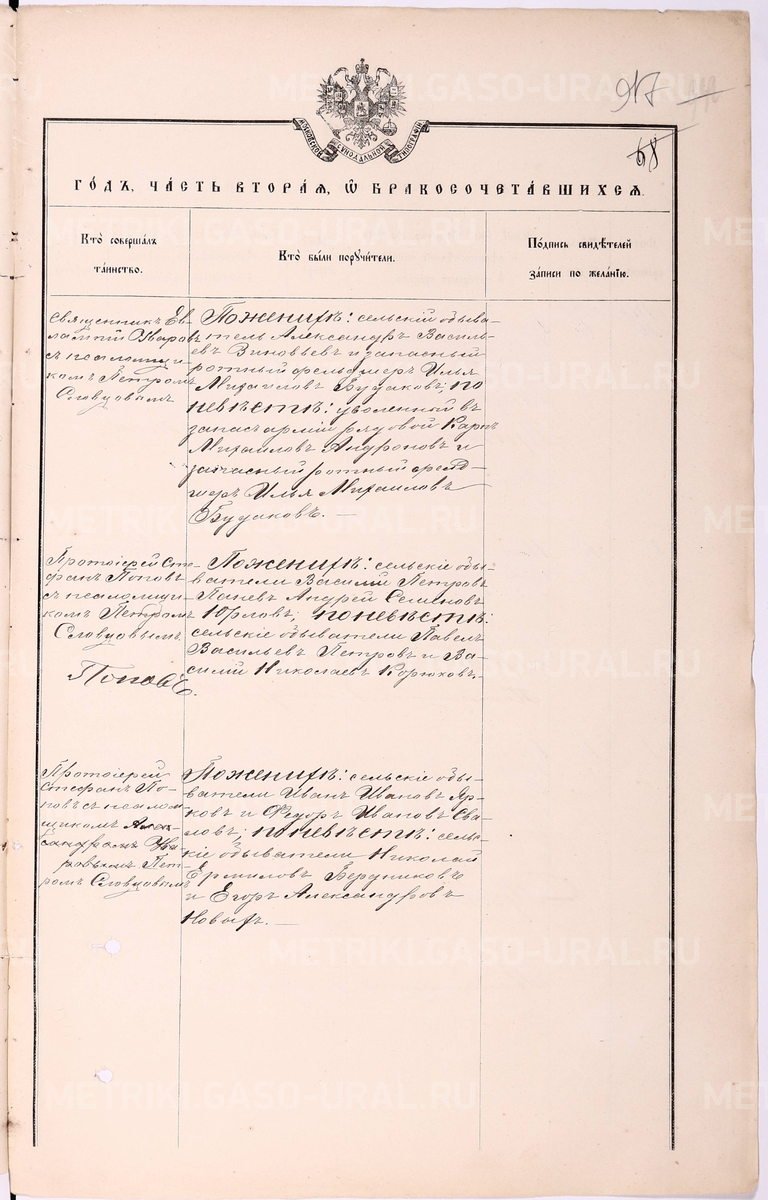 917
68
МОСКОВСКОЙ СУНОДАЛЬНОЙ ТИПОГРАФІИ
ГО́ДЪ, ЧА́СТЬ ВТОРА́Я, Ѡ҆ БРАКОСОЧЕТА́ВШИХСЯ.
Кто̀ соверша́лъ
та́инство.
Кто̀ бы́ли порꙋчи́тели.
По́дпись свидѣ́телей
за́писи по жела́нїю.
Священникъ Ев-
лампій Уваровъ
съ псаломщи-
комъ Петромъ
Словцовымъ
По женихѣ: сельскій обыва-
тель Александръ Василь-
евъ Зиновьевъ и запасный
ротный фельдшеръ Илья
Михаиловъ Будаковъ; по
невѣстѣ: уволенный въ
запасъ арміи рядовой Карпъ
Михаиловъ Андроновъ и
запасный ротный фельд-
шеръ Илья Михаиловъ
Будаковъ. —
Протоіерей Сте-
фанъ Поповъ
съ псаломщи-
комъ Петромъ
Словцовымъ
Поповъ.
По женихѣ: сельскіе обы-
ватели Василій Петровъ
Андрей Семеновъ
Юрловъ; по невѣстѣ:
сельскіе обыватели Павелъ
Васильевъ Петровъ и Ва-
силій Николаевъ Корюковъ.
Протоіерей
Стефанъ По-
повъ съ псалом-
щикомъ Алек-
сандромъ Ува-
ровымъ Пет-
ромъ Словцовымъ
По женихѣ: сельскіе обы-
ватели Иванъ Ивановъ Яр-
ковъ и Федоръ Ивановъ Сва-
ловъ; по невѣстѣ: сель-
кіе обыватели Николай
Ермиловъ Бердниковъ
и Егоръ Александровъ
Новыхъ. —
METRIKI.GASO-URAL.RU